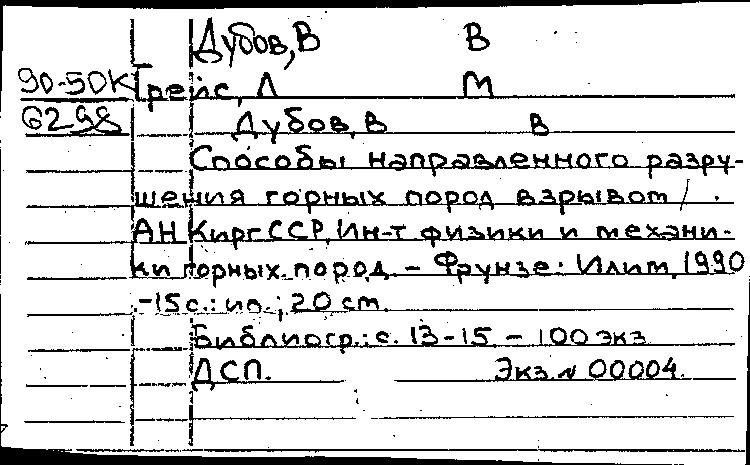 Дубов, В В
90-50К Грейс, Л М
6298 Дубов, В В
Способы направленного разру-
шения горных пород взрывом /
АН КиргССР, Ин-т физики и механи-
ки горных пород. - Фрунзе: Илим, 1990
.-15 с.: ил.; 20 cm.
Библиогр.: с. 13-15. - 100 экз
ДСП. Экз. № 00004.